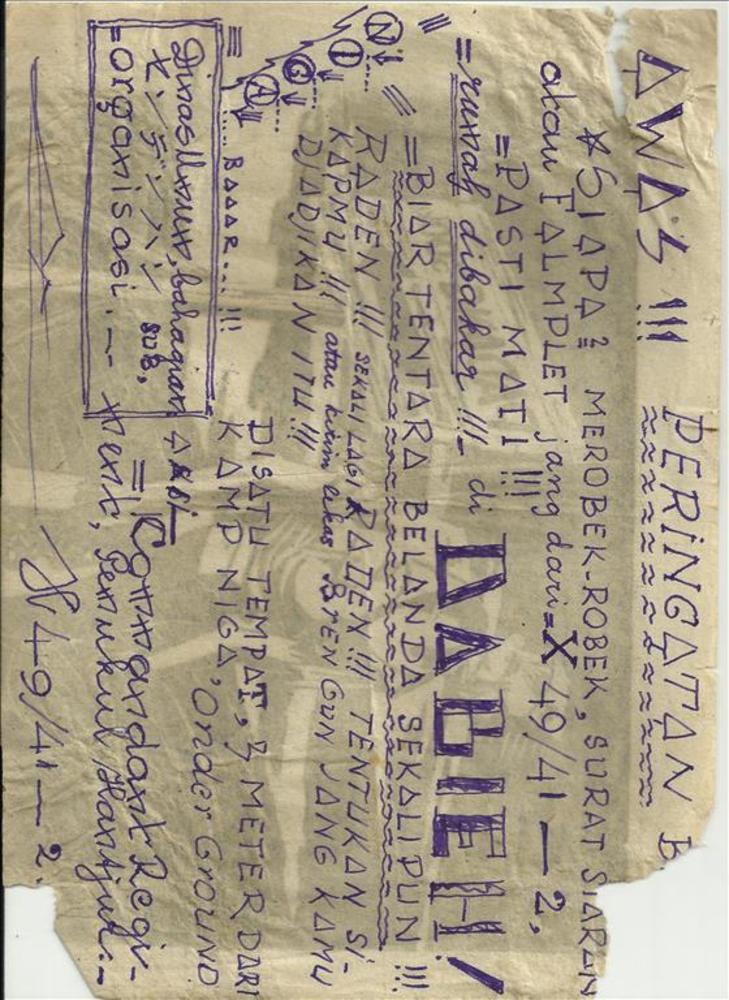 AWAS !!! PERINGATAN B
*SIAPA2 MEROBEK-ROBEK, SURAT SIARAN
atau FALMPLET jang dari=X 49/41 — 2,
=PASTI MATI !!!
=rumah dibakar !!!- di DABIEH!
=BIAR TENTARA BELANDA SEKALIPUN !!!
RADEN !!! SEKALI LAGI RADEN !!! TENTUKAN SI-
KAPMU !!! atau kirim lekas BREN GUN JANG KAMU
DJADJIKAN ITU !!!
N
I
G
A
DISATU TEMPAT, 3 METER DARI
KAMP NIGA, Onder GROUND
..... BAAAR... !!!
Dinas Umum, bahagian AKSI
X. ンデンハン SUB,
=organisasi.--
=Commandant Regi-
ment, Pemukul Hantjur.-
X 49/41 — 2.